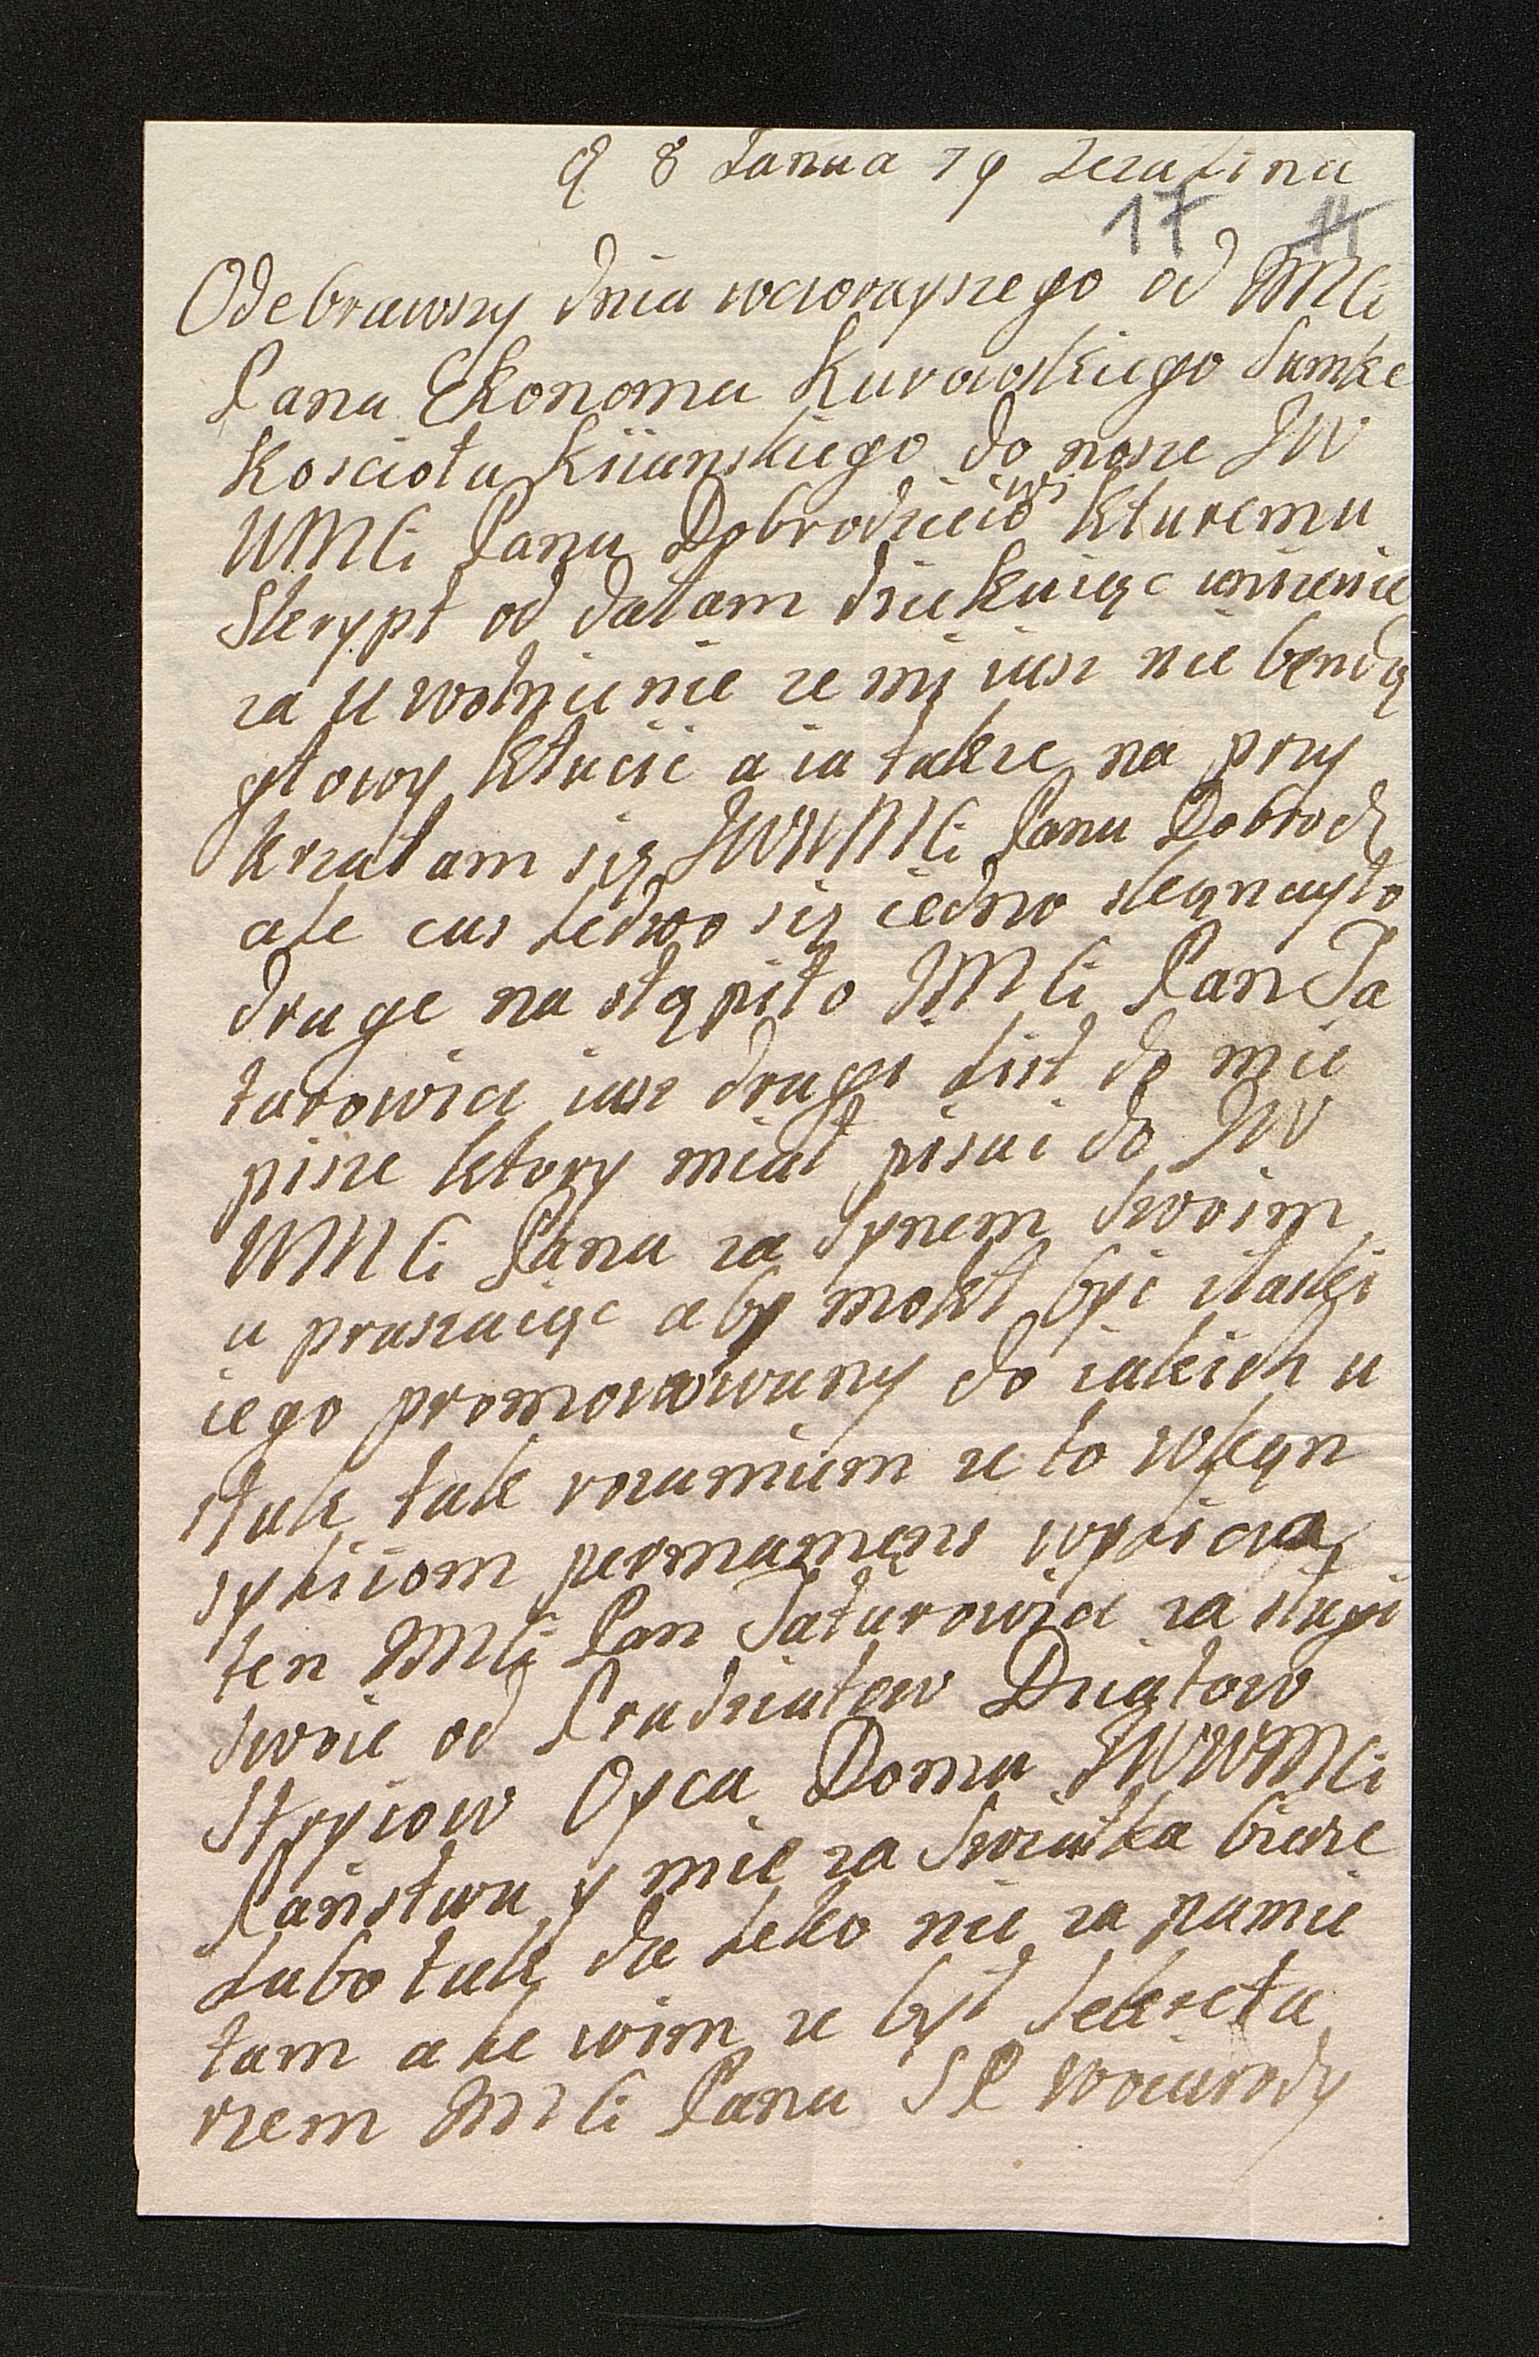 d 8 Janua 79 Jezafina
17 11
Odebrawszy dnia wczorayszego od JMCi
Pana Ekonoma Kurowskiego Sumke
Koscioła Kiianskiego do nosze JW
WMCi Panu Dobrodzieiowi kturemu
Skrypt od dałam dziekuiąc uniżenie
za uwolnienie ze mi iusz nie bendą
głowy kłucic a ia takze na przy
krzałam się JWWMCi Panu Dobrodz
ale cus ledwo się iedno skąnczyło
druge na stąpiło JMCi Pan Ta
tarowicz iusz drugi list do mie
pisze ktory miał pisac do JW
WMCi Pana za Synem Swoim
u praszaiąc aby mokł byc złaski
iego promowowany do iakich u
sług tak rozumiem ze to w kąn
syliiom permamens wylicza
ten JMCi Pan Tatarowicz za sługi
swoie od Pradziatow Dziątow
Stryiow Oyca Domu JWWMCi
Państwu y mie za Swiatka bierze
Lubo tak da leko nie za pamie
tam ale wim ze był Sekreta
rzem JMCi Pana SP Woiewody